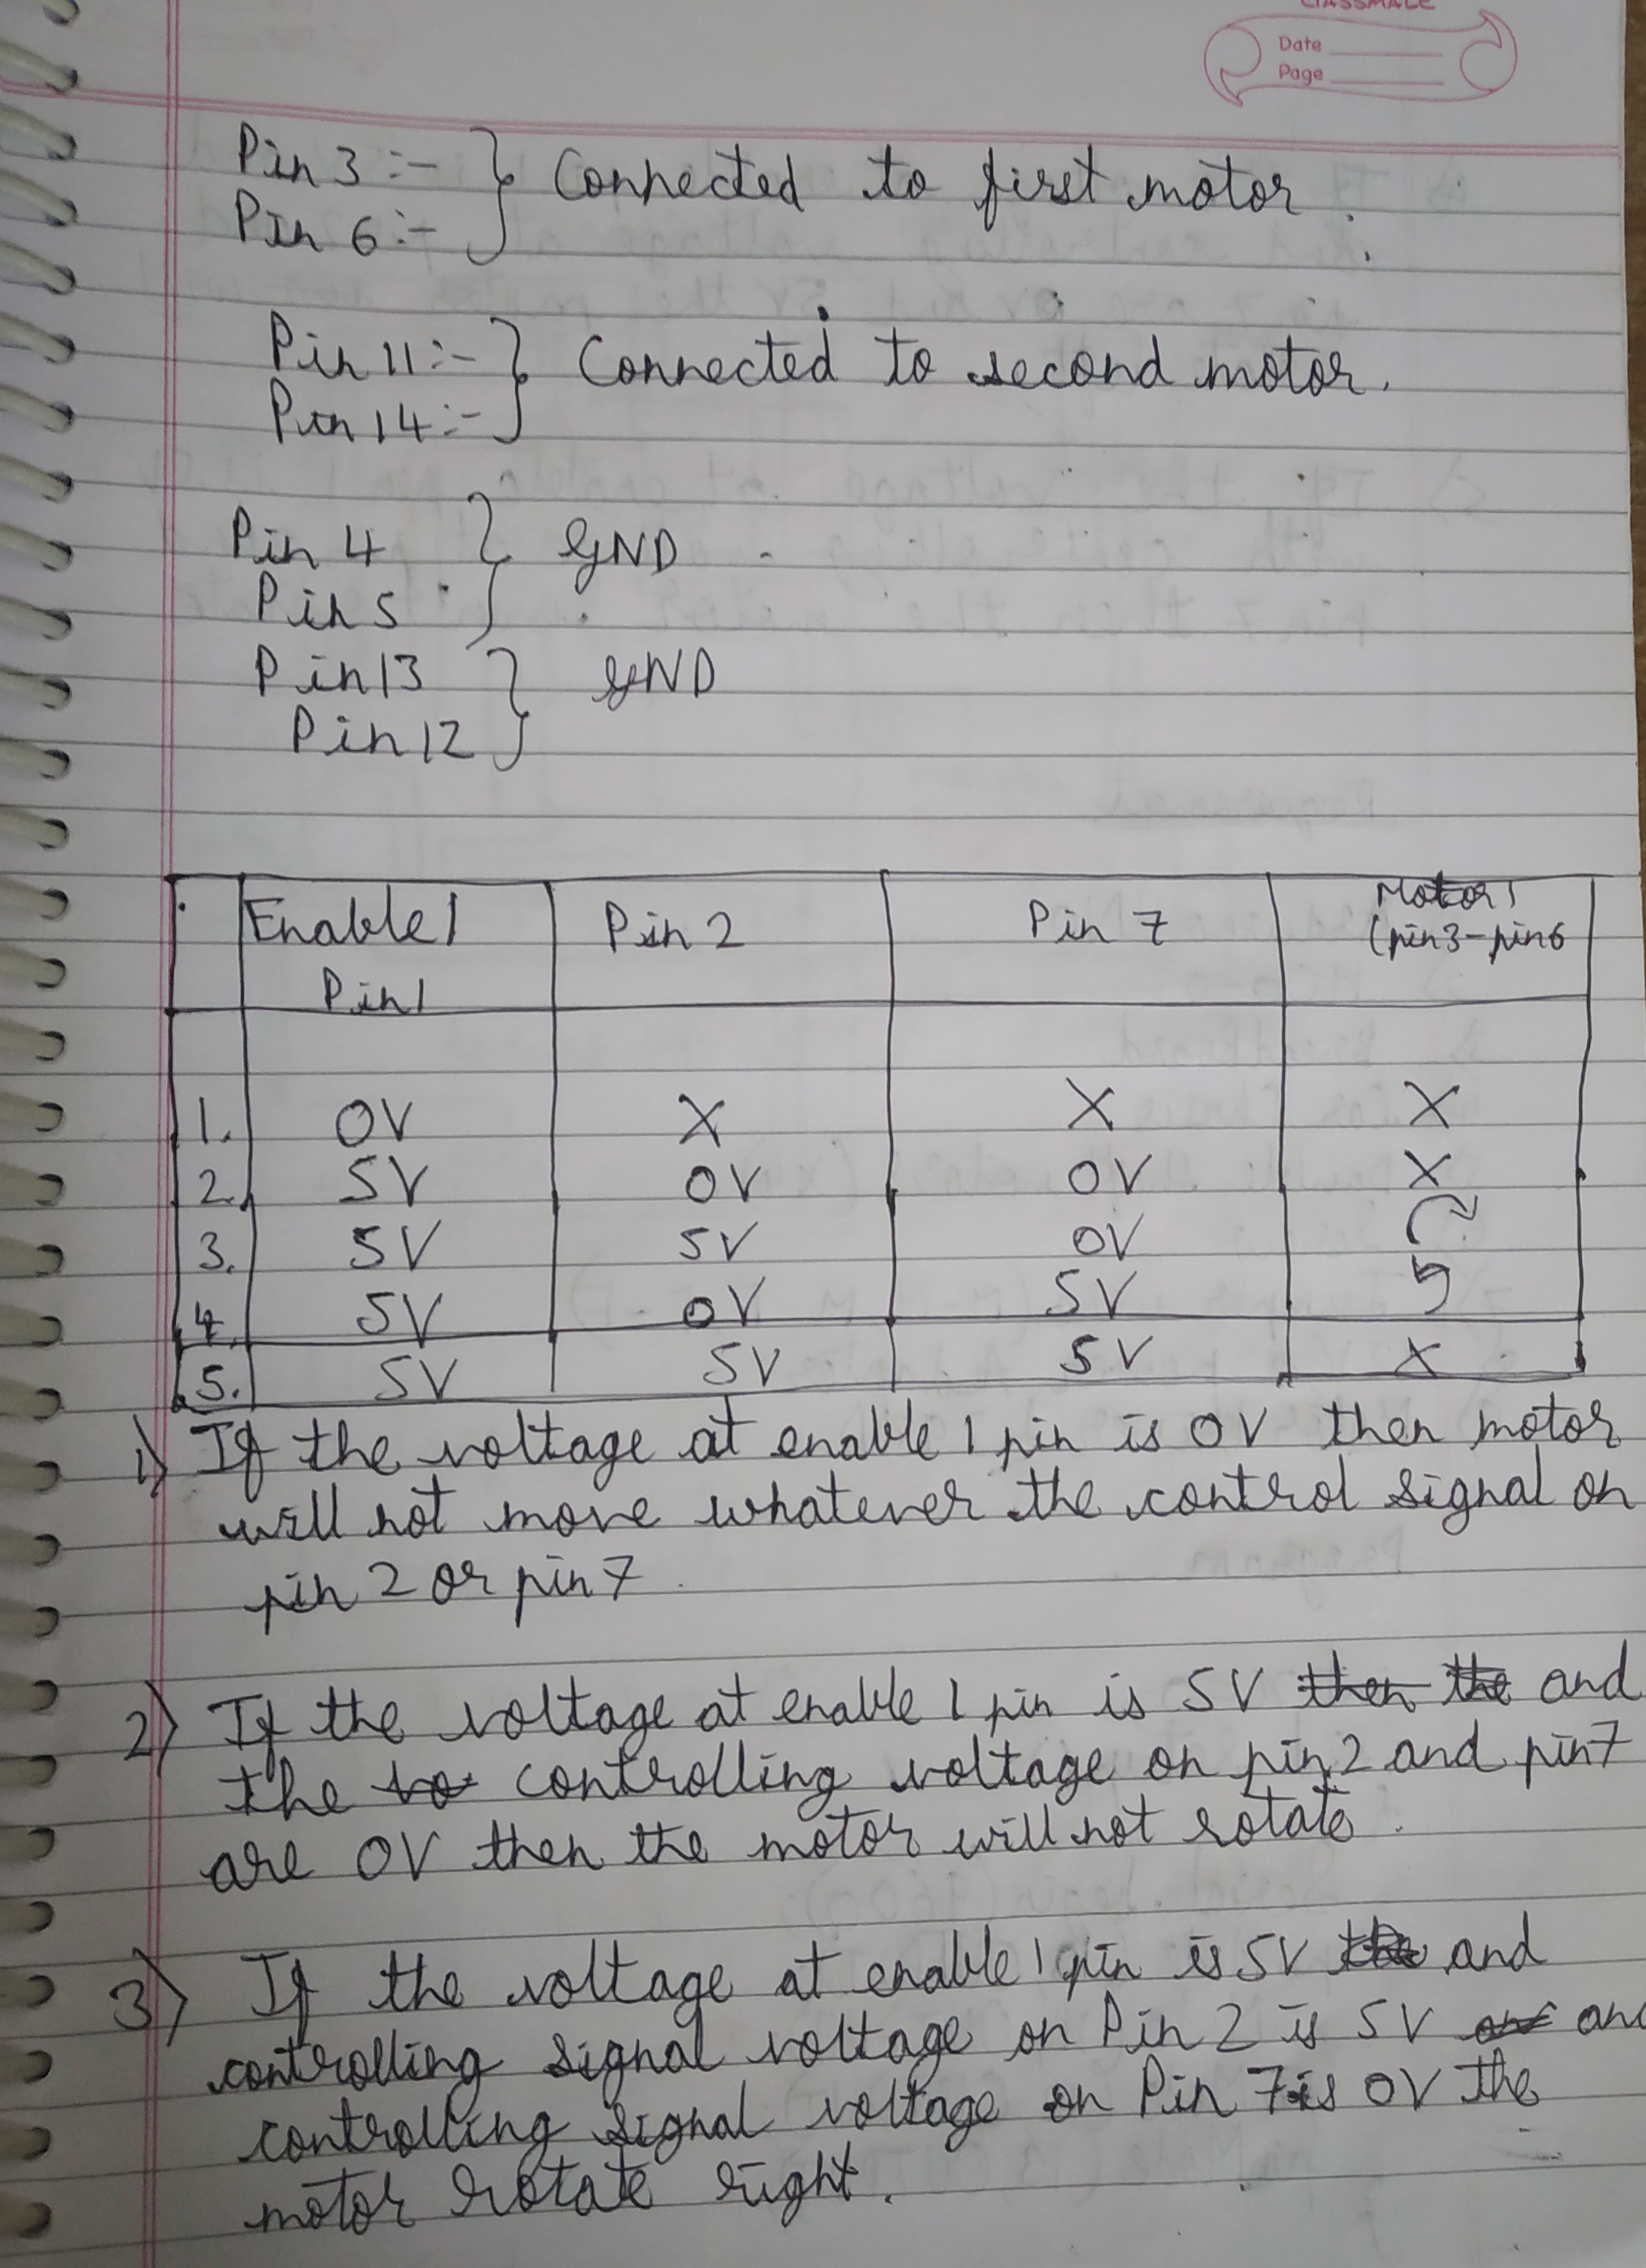 CLASSMATE
Date
Page
Pin 3 :- } Connected to first motor.
Pin 6 :-
Pin 11 :- } Connected to second motor.
Pin 14 :-
Pin 4 } GND
Pin 5
Pin 13 } GND
Pin 12
Enable 1 Pin 2 Pin 7 Motor 1
Pin 1 (pin3-pin6
1. 0V X X X
2. 5V 0V 0V X
3. 5V 5V 0V ↷
4. 5V 0V 5V ↶
5. 5V 5V 5V X
1) If the voltage at enable 1 pin is 0V then motor
will not move whatever the control signal on
pin 2 or pin 7.
2) If the voltage at enable 1 pin is 5V then the and
the vo controlling voltage on pin 2 and pin 7
are 0V then the motor will not rotate.
3) If the voltage at enable 1 pin is 5V the and
controlling signal voltage on Pin 2 is 5V and
controlling signal voltage on Pin 7 is 0V the
motor rotate right.